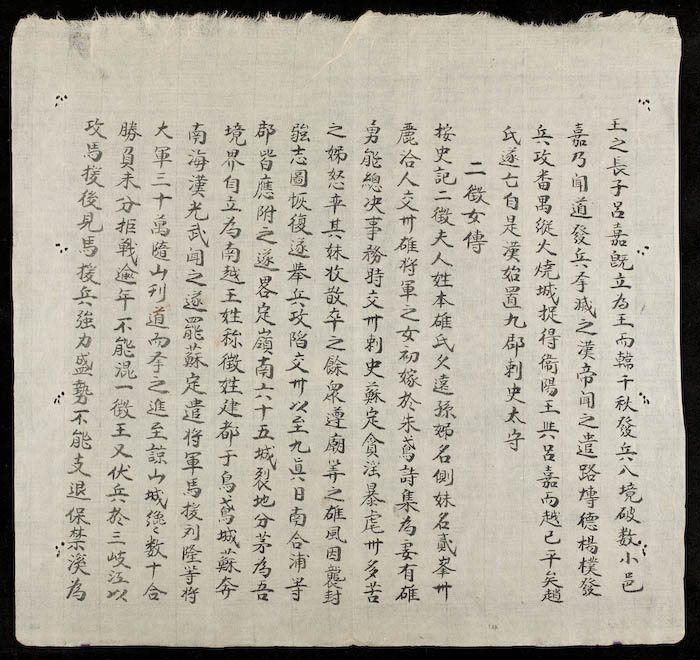 王之長子呂嘉既立為王而韓千秋發兵入境破数小邑
嘉乃聞道發兵夆滅之漢帝聞之遣路愽德楊樸發
兵攻畨禺縱火燒城捉得衛陽王與呂嘉而越已平矣趙
氏遂亡自是漢始置九郡刺史太守
二徵女傳
按史記二徵夫人姓本雄氏父遠孫姊名側妹名貳峯州
麗冾人交州雄將軍之女初嫁於朱鳶詩集為妻有雄
勇能總决事務時交州刺史蘇定貪淫暴虐州多苦
之姊怒率其妹收散卒之餘衆遵廟筭之雄風因襲封
強志圖恢復遂舉兵攻陷交州以至九真日南合浦等
郡皆應附之遂畧定嶺南六十五城裂地分茅為吾
境界自立為南越王姓称徵姓建都于鳥鳶城蘇奔
南海漢光武聞之遂罷蘇定遣將軍馬援刘隆等將
大軍三十萬隨山刋道而夆之進至諒山城纔数十合
勝負未分拒戰逾年不能混一徵王又伏兵於三岐江以
攻馬援後見馬援兵強力盛勢不能支退保禁溪為